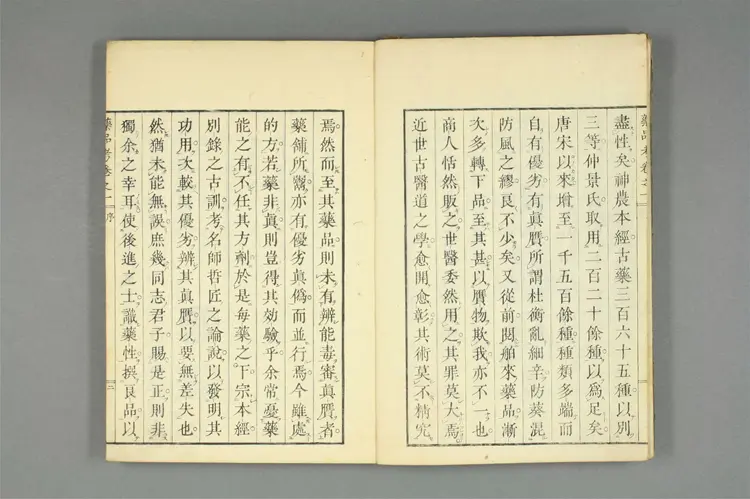 藥品考卷之一
盡性矣。神農本經古藥三百六十五種以別
三等仲景氏取用二百二十餘種以爲足矣。
唐宋以來增至一千五百餘種種類多端而
自有優劣有眞贋所謂杜衡亂細辛防葵混
防風之繆良不少矣又從前閱舶來藥品漸
次多轉下品至其甚以贋物欺我亦不一也。
商人恬然販之世醫委然用之其罪莫大焉。
近世古醫道之學愈開愈彰其術莫不精究
焉。然而至其藥品則未有辨能毒審眞贋者。
藥鋪所鬻亦有優劣眞僞而並行焉今雖處
的方若藥非眞則豈得其効驗乎余常憂藥
能之有不任其方劑於是每藥之下宗本經
別錄之古訓考名師哲匠之論說以發明其
功用次較其優劣辨其眞贋以要無差失也。
然猶未能無誤庶幾同志君子賜是正則非
獨余之幸耳使後進之士識藥性撰良品以
藥品考卷之一 序 二